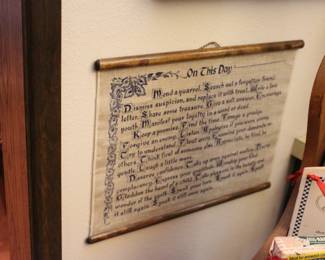 On This Day
Mend a quarrel. Search out a forgotten friend.
Dismiss suspicion, and replace it with trust. Write a love
letter. Share some treasure. Give a soft answer. Encourage
youth. Manifest your loyalty in a word or deed.
Keep a promise. Find the time. Forego a grudge.
Forgive an enemy. Listen. Apologize if you were wrong.
Try to understand. Flout envy. Examine your demands on
others. Think first of someone else. Appreciate, be kind, be
gentle. Laugh a little more.
Deserve confidence. Take up arms against malice. Decry
complacency. Express your gratitude. Worship your God.
Gladden the heart of a child. Take pleasure in the beauty and
wonder of the earth. Speak your love. Speak it again. Speak
it still again. Speak it still once again.